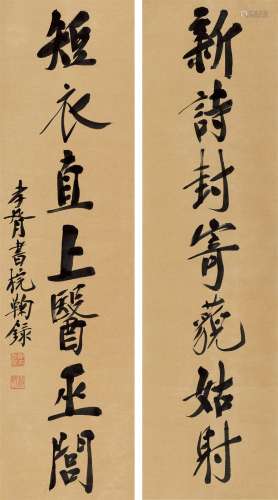 新詩封寄藐姑射
短衣直上醫巫閭
孝胥書梡鞠錄